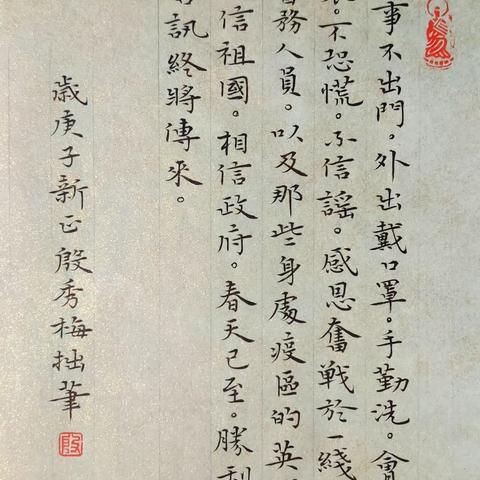 事不出門。外出戴口罩。手勤洗。會
。不恐慌。不信謠。感恩奮戰於一綫
務人員。以及那些身處疫區的英
信祖國。相信政府。春天已至。勝利
訊終將傳來。
歲庚子新正殷秀梅拙筆
殷